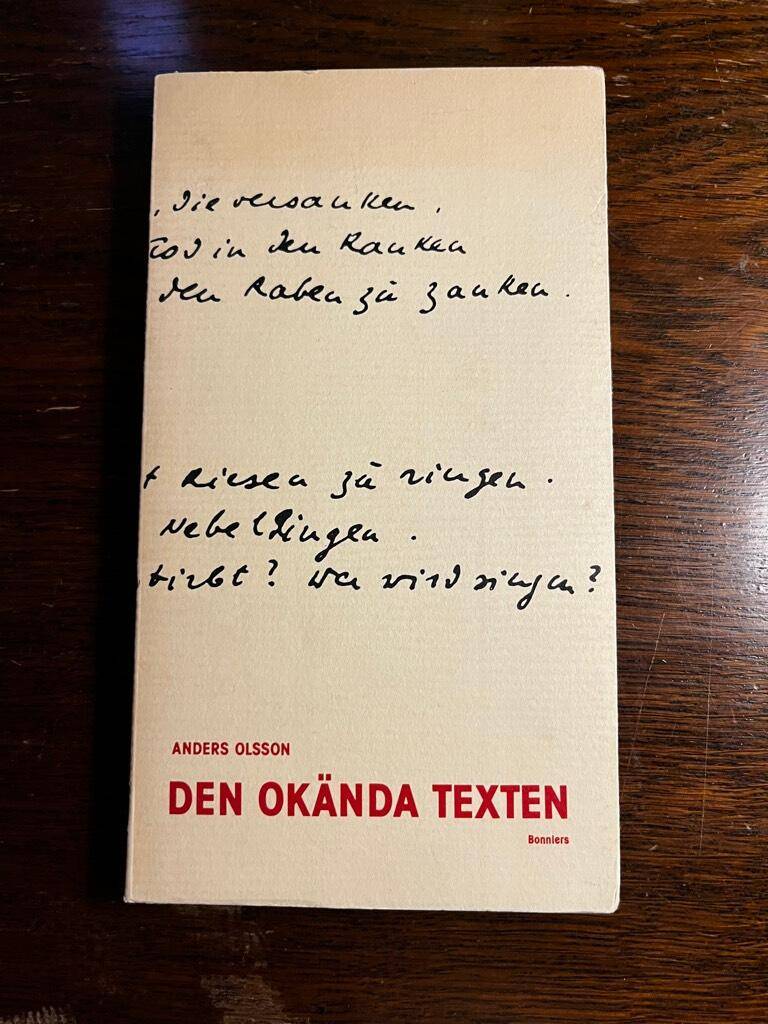 , die versanken,
Tod in den Ranken
den Raben zu zanken.
t Riesen zu ringen.
Nebeldingen.
tirbt? Wer wird singen?
ANDERS OLSSON
DEN OKÄNDA TEXTEN
Bonniers